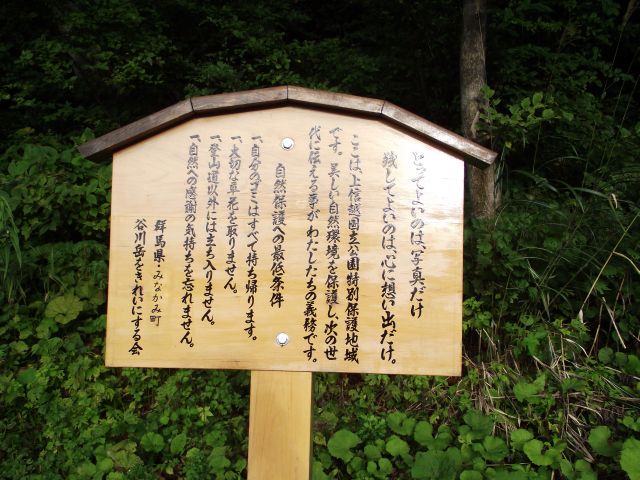 とってよいのは、写真だけ
残してよいのは、心に想い出だけ。
ここは、上信越国立公園特別保護地域
です。美しい自然環境を保護し次の世
代に伝える事が、わたしたちの義務です。
自然保護への最低条件
一、自分のゴミはすべて持ち帰ります。
一、大切な草花を取りません。
一、登山道以外には立ち入りません。
一、自然への感謝の気持ちを忘れません。
群馬県・みなかみ町
谷川岳をきれいにする会